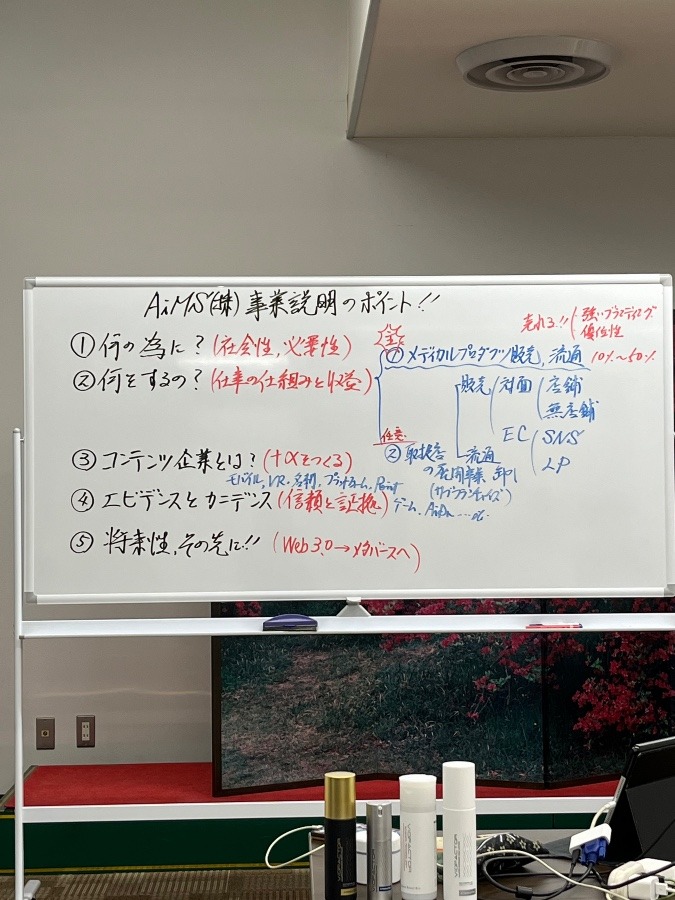 AiMS(株)事業説明のポイント!!
売れる!! 強いブランディング
優位性
① 何の為に?(社会性,必要性)
① メディカルプロダクツ販売,流通 10%〜50%
② 何をするの?(仕事の仕組みと収益)
販売 対面 店舗
無店舗
EC SNS
LP
任意
② 取扱店 流通
の 展開事業 卸し
(サブフランチャイズ)
③ コンテンツ企業とは?(+αをつくる)
モバイル,VR・名刺,プラットホーム,Point
ゲーム,
④ エビデンスとカニデンス(信頼と証拠)
⑤ 将来性,その先に!!(Web3.0→メタバースへ)